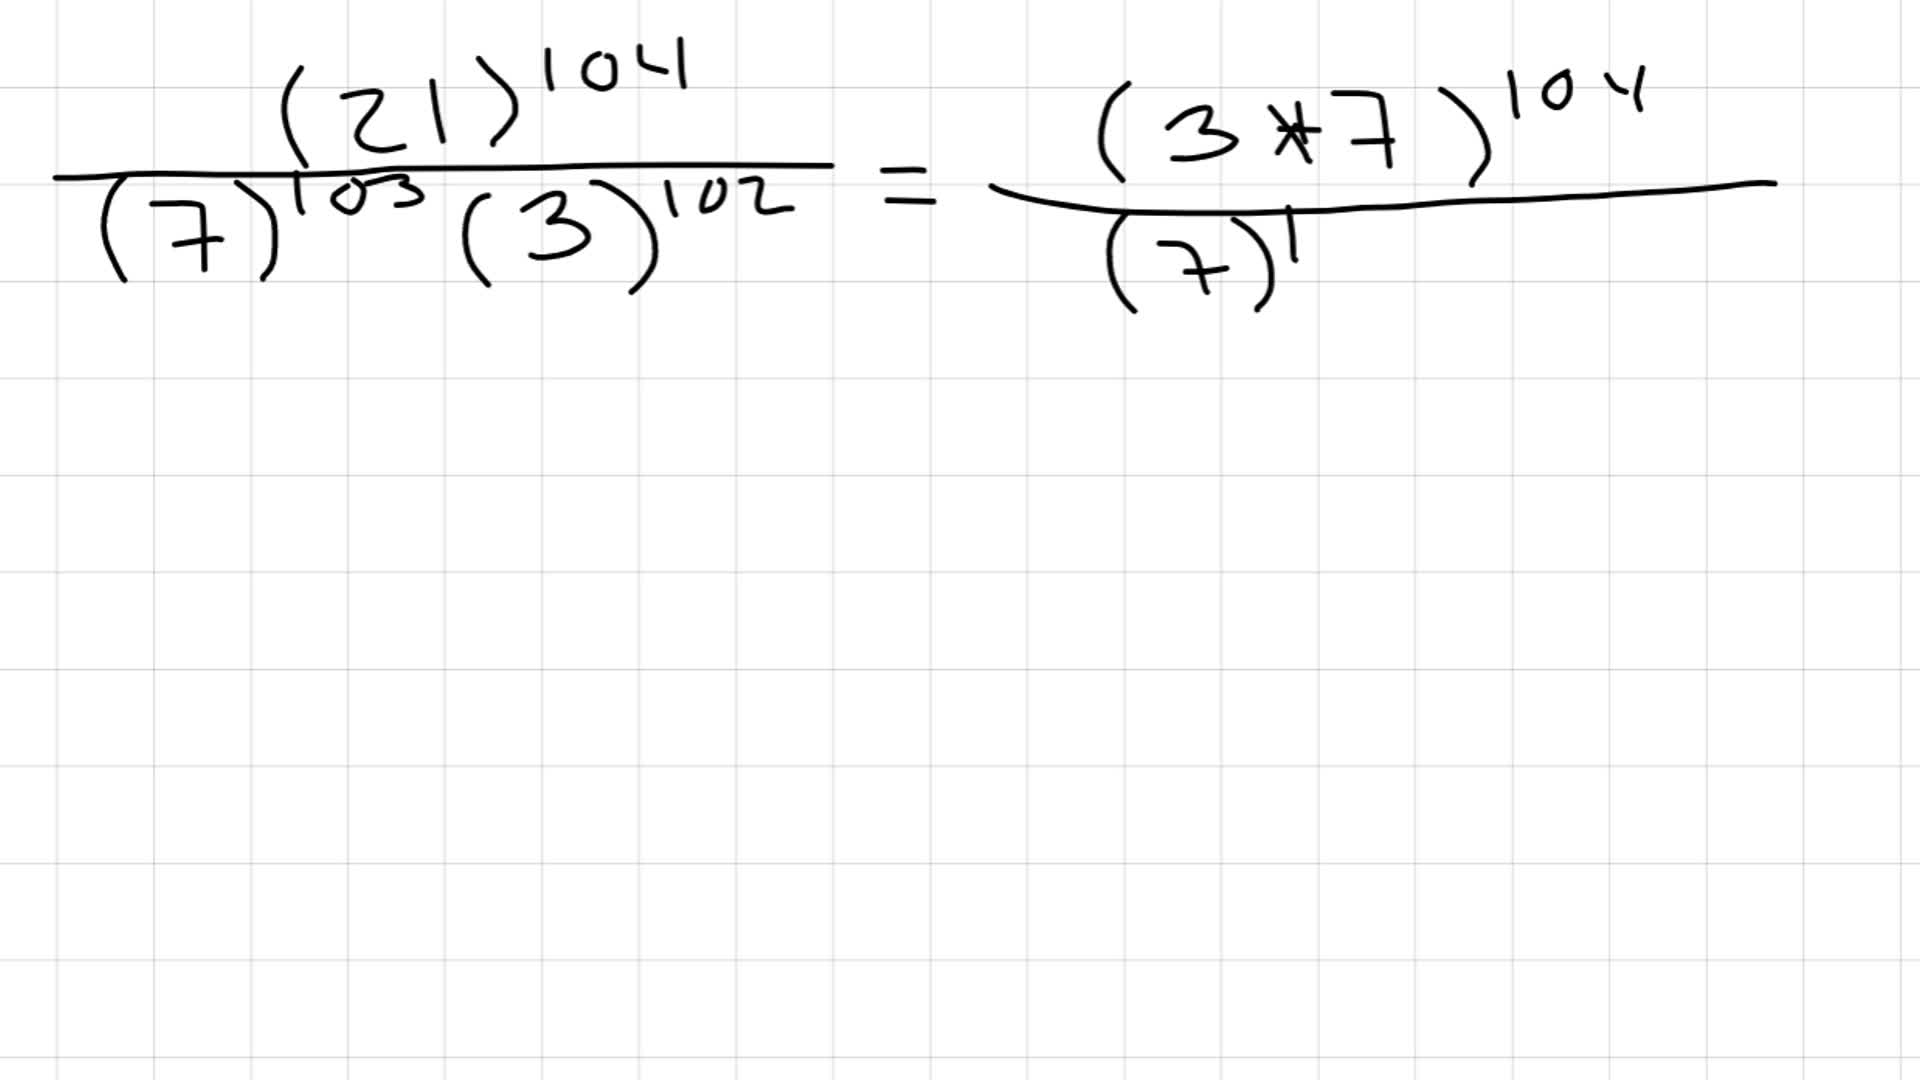 (21)^104 / (7)^103 (3)^102 = (3*7)^104 / (7)^1